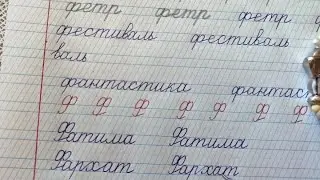 фетр фетр фетр
фестиваль фестиваль
валь
фантастика фантаст
Ф Ф Ф Ф Ф Ф Ф
Фатима Фатима
Фархат Фархат